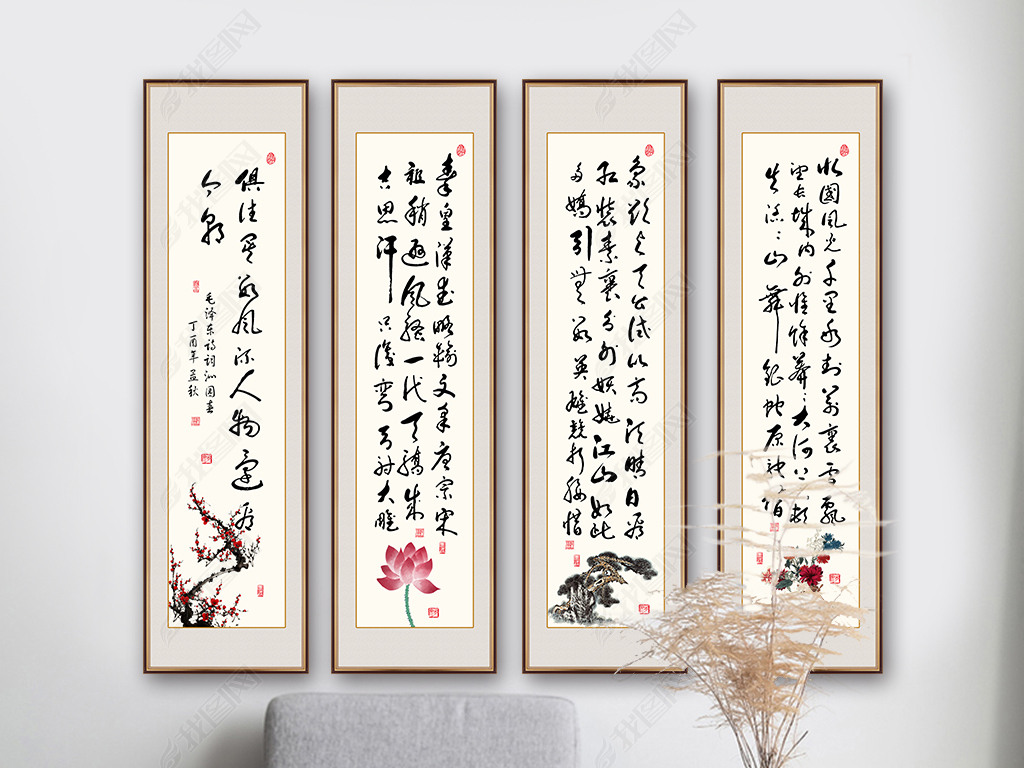 北國風光千里冰封萬里雪飄
望長城内外惟馀莽〻大河上下頓
失滔〻山舞銀蛇原馳蜡
象欲与天公试比高须晴日看
红装素裹分外妖娆江山如此
多嬌引無数英雄競折腰惜
秦皇漢武略输文采唐宗宋
祖稍逊風骚一代天驕成
吉思汗只識弯弓射大雕
俱往矣数風流人物還看
今朝
毛泽东诗词沁园春
丁酉年孟秋